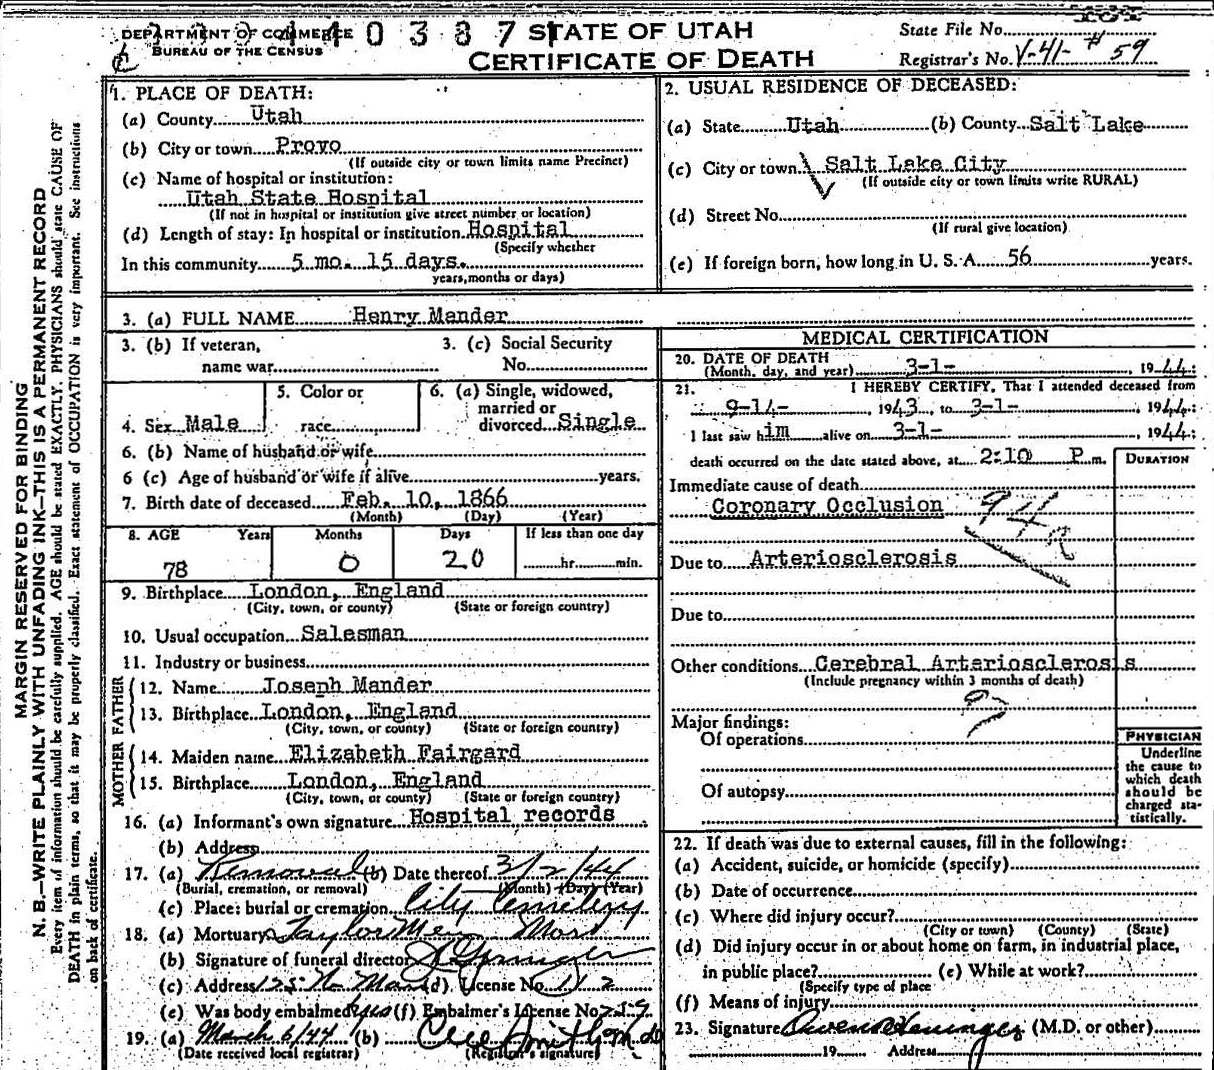 DEPARTMENT OF COMMERCE
BUREAU OF THE CENSUS
STATE OF UTAH
CERTIFICATE OF DEATH
State File No.
Registrar's No. V-41-#59
MARGIN RESERVED FOR BINDING
N. B.—WRITE PLAINLY WITH UNFADING INK—THIS IS A PERMANENT RECORD
Every item of information should be carefully supplied. AGE should be stated EXACTLY. PHYSICIANS should state CAUSE OF
DEATH in plain terms, so that it may be properly classified. Exact statement of OCCUPATION is very important. See instructions
on back of certificate.
1. PLACE OF DEATH:
(a) County Utah
(b) City or town Provo
(If outside city or town limits name Precinct)
(c) Name of hospital or institution:
Utah State Hospital
(If not in hospital or institution give street number or location)
(d) Length of stay: In hospital or institution Hospital
(Specify whether
In this community 5 mo. 15 days.
years, months or days)
2. USUAL RESIDENCE OF DECEASED:
(a) State Utah (b) County Salt Lake
(c) City or town Salt Lake City
(If outside city or town limits write RURAL)
(d) Street No.
(If rural give location)
(e) If foreign born, how long in U. S. A. 56 years.
3. (a) FULL NAME Henry Mander
3. (b) If veteran,
name war
3. (c) Social Security
No.
4. Sex Male
5. Color or
race
6. (a) Single, widowed,
married or
divorced Single
6. (b) Name of husband or wife
6 (c) Age of husband or wife if alive years.
7. Birth date of deceased Feb. 10, 1866
(Month) (Day) (Year)
8. AGE Years Months Days If less than one day
78 0 20 hr. min.
9. Birthplace London, England
(City, town, or county) (State or foreign country)
10. Usual occupation Salesman
11. Industry or business
FATHER
12. Name Joseph Mander
13. Birthplace London, England
(City, town, or county) (State or foreign country)
MOTHER
14. Maiden name Elizabeth Fairgard
15. Birthplace London, England
(City, town, or county) (State or foreign country)
16. (a) Informant's own signature Hospital records
(b) Address
17. (a) Removal (b) Date thereof 3/2/44
(Burial, cremation, or removal) (Month) (Day) (Year)
(c) Place: burial or cremation City Cemetery
18. (a) Mortuary Taylor Mem Mort
(b) Signature of funeral director
(c) Address 125 N. Main (d) License No.
(e) Was body embalmed yes (f) Embalmer's License No.
19. (a) March 6/44 (b)
(Date received local registrar) (Registrar's signature)
MEDICAL CERTIFICATION
20. DATE OF DEATH
(Month, day, and year) 3-1- , 1944:
21. I HEREBY CERTIFY, That I attended deceased from
9-14- , 1943, to 3-1- , 1944:
I last saw him alive on 3-1- 1944:
death occurred on the date stated above, at 2:10 P.m.
DURATION
Immediate cause of death
Coronary Occlusion
94a
Due to Arteriosclerosis
Due to
Other conditions Cerebral Arteriosclerosis
(Include pregnancy within 3 months of death)
97
Major findings:
Of operations
Of autopsy
PHYSICIAN
Underline
the cause to
which death
should be
charged sta-
tistically.
22. If death was due to external causes, fill in the following:
(a) Accident, suicide, or homicide (specify)
(b) Date of occurrence
(c) Where did injury occur?
(City or town) (County) (State)
(d) Did injury occur in or about home on farm, in industrial place,
in public place? (e) While at work?
(Specify type of place
(f) Means of injury
23. Signature Owen Heninger (M.D. or other)
19 Address